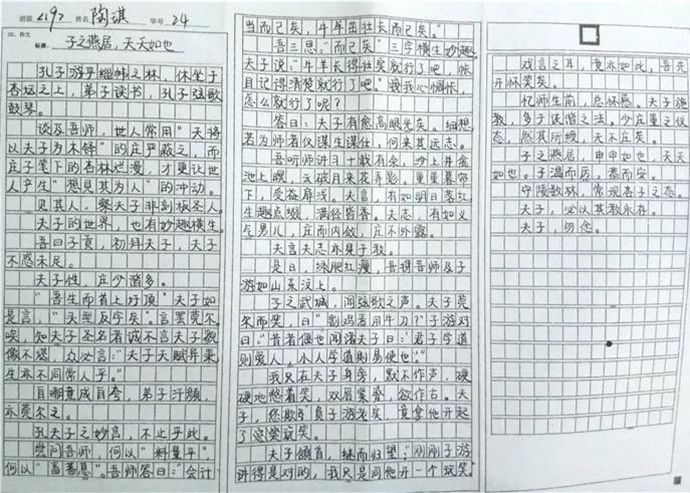 班级 219? 姓名 陶淇 学号 24
20. 作文
标题: 子之燕居，夭夭如也
孔子游乎缁帷之林，休坐于
杏坛之上，弟子读书，孔子弦歌
鼓琴。
谈及吾师，世人常用“天将
以夫子为木铎”的庄严蔽之，而
庄子笔下的杏林烂漫，才更让世
人产生“想见其为人”的冲动。
见其人，琴夫子非刻板圣人
夫子的世界，也有妙趣横生
吾曰子贡，初拜夫子，夫子
不惑未足。
夫子性，庄少谐多。
“吾生而首上圩顶”夫子如
是言，“头型反宇矣。”言罢莞尔。
唉，知夫子圣名者诚不言夫子貌
像不堪，众必言：“夫子天赋异秉，
生亦不同常人乎。”
自嘲竟成自夸，弟子汗颜，
亦莞尔之。
孔夫子之妙言，不止乎此。
尝问吾师，何以“料量平”，
何以“畜蕃息”。吾师答曰：“会计
当而已矣，牛羊茁壮长而已矣。”
吾三思，“而已矣”三字横生妙趣。
夫子说：“牛羊长得壮实就行了吧，帐
目记得清楚就行了吧。”我心惆怅，
怎么就行了呢？
答曰：夫子有愈高眼光矣。细想
若为师者仅谋生谋仕，何来其远志。
吾听师讲习十载有余，沙上并禽
池上暝，云破月来花弄影。重重暮帘
下，受益靡浅。夫言，有如明日落红
生趣点缀，满径皆香。夫志，有如义
气男儿，庄而内敛，庄不外露。
夫言夫志亦见于教。
是日，绿肥红瘦，吾偕吾师及子
游如山东汶上。
子之武城，闻弦歌之声。夫子莞
尔而笑，曰“割鸡焉用牛刀？”子游对
曰：“昔者偃也闻诸夫子曰：‘君子学道
则爱人，小人学道则易使也’。”
我只在夫子身旁，默不作声，硬
硬地憋着笑，双眉紧蹙，欲作古。夫
子，您欺负负子游老矣，竟拿他开起
了这等玩笑。
夫子颔首，继而归望：“刚刚子游
讲得是对的，我只是同他开一个玩笑。”
戏言之耳，竟亦如此，吾先
开怀笑矣。
忆师生前，总怀感。夫子施
教，多于诙谐之法，少庄重之仪
态，然其所授，无不庄矣。
子之燕居，申申如也，夭夭
如也。子温而厉，恭而安。
守陵数秋，常观杏子之态。
夫子，必以其教永存。
夫子，勿念。